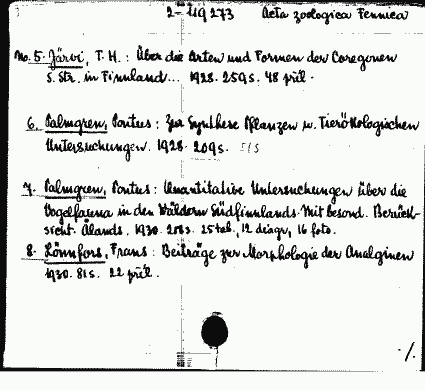 2-119273 Acta zoologica Fennica
No. 5. Järvi, T. H.: Über die Arten und Formen der Coregonen
s. str. in Finnland... 1928. 259 s. 48 pül.
6. Palmgren, Pontus: Zur Synthese Pflanzen u. Tierökologischen
Untersuchungen. 1928. 209 s.
7. Palmgren, Pontus: Quantitative Untersuchungen über die
Vogelfauna in den Wäldern Südfinnlands. Mit besond. Berück-
sicht. Ålands. 1930. 218 s. 25 tab., 12 diagr., 16 foto.
8. Lönnfors, Frans: Beiträge zur Morphologie der Analginen
1930. 81 s. 22 pül.
./.